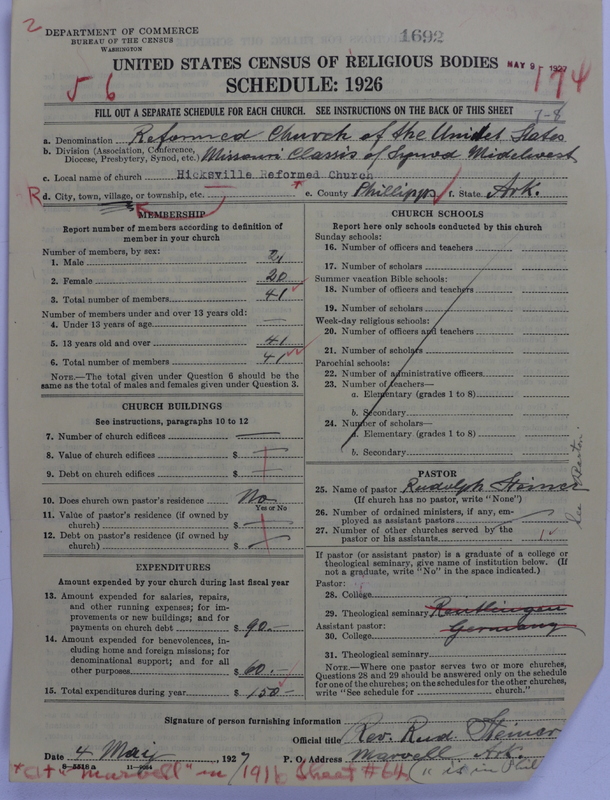 2
DEPARTMENT OF COMMERCE
BUREAU OF THE CENSUS
WASHINGTON
1692
UNITED STATES CENSUS OF RELIGIOUS BODIES
MAY 9 - 1927
SCHEDULE: 1926
5 6
174
FILL OUT A SEPARATE SCHEDULE FOR EACH CHURCH. SEE INSTRUCTIONS ON THE BACK OF THIS SHEET
7-8
a. Denomination Reformed Church of the United States
b. Division (Association, Conference, Diocese, Presbytery, Synod, etc.) Missouri Classis of Synod Midwest
c. Local name of church Hicksville Reformed Church
R d. City, town, village, or township, etc. * e. County Phillipps f. State Ark.
MEMBERSHIP
Report number of members according to definition of
member in your church
Number of members, by sex:
1. Male 21
2. Female 20
3. Total number of members 41
Number of members under and over 13 years old:
4. Under 13 years of age —
5. 13 years old and over 41
6. Total number of members 41
NOTE.—The total given under Question 6 should be
same as the total of males and females given under Question 3.
CHURCH BUILDINGS
See instructions, paragraphs 10 to 12
7. Number of church edifices —
8. Value of church edifices $ —
9. Debt on church edifices $ —
10. Does church own pastor's residence No
Yes or No
11. Value of pastor's residence (if owned by
church) $ —
12. Debt on pastor's residence (if owned by
church) $ —
EXPENDITURES
Amount expended by your church during last fiscal year
13. Amount expended for salaries, repairs,
and other running expenses; for im-
provements or new buildings; and for
payments on church debt $ 90.-
14. Amount expended for benevolences, in-
cluding home and foreign missions; for
denominational support; and for all
other purposes $ 60.-
15. Total expenditures during year $ 150-
CHURCH SCHOOLS
Report here only schools conducted by this church
Sunday schools:
16. Number of officers and teachers
17. Number of scholars
Summer vacation Bible schools:
18. Number of officers and teachers
19. Number of scholars
Week-day religious schools:
20. Number of officers and teachers
21. Number of scholars
Parochial schools:
22. Number of administrative officers
23. Number of teachers—
a. Elementary (grades 1 to 8)
b. Secondary
24. Number of scholars—
a. Elementary (grades 1 to 8)
b. Secondary
PASTOR
25. Name of pastor Rudolph Steiner
(If church has no pastor, write "None")
26. Number of ordained ministers, if any, em-
ployed as assistant pastors —
27. Number of other churches served by the
pastor or his assistants 1
If pastor (or assistant pastor) is a graduate of a college or
theological seminary, give name of institution below. (If
not a graduate, write "No" in the space indicated.)
Pastor:
28. College
29. Theological seminary Reutlingen
Assistant pastor: Germany
30. College
31. Theological seminary
NOTE.—Where one pastor serves two or more churches,
Questions 28 and 29 should be answered only on the schedule
for one of the churches; on the schedules for the other churches,
write "See schedule for church."
See
Signature of person furnishing information
Official title Rev. Rud. Steiner
Date 4 May, 1927 P. O. Address Marvell Ark.
8-5516a 11-9064
"Marvell" in 1916 Sheet #64 ("is in Phil